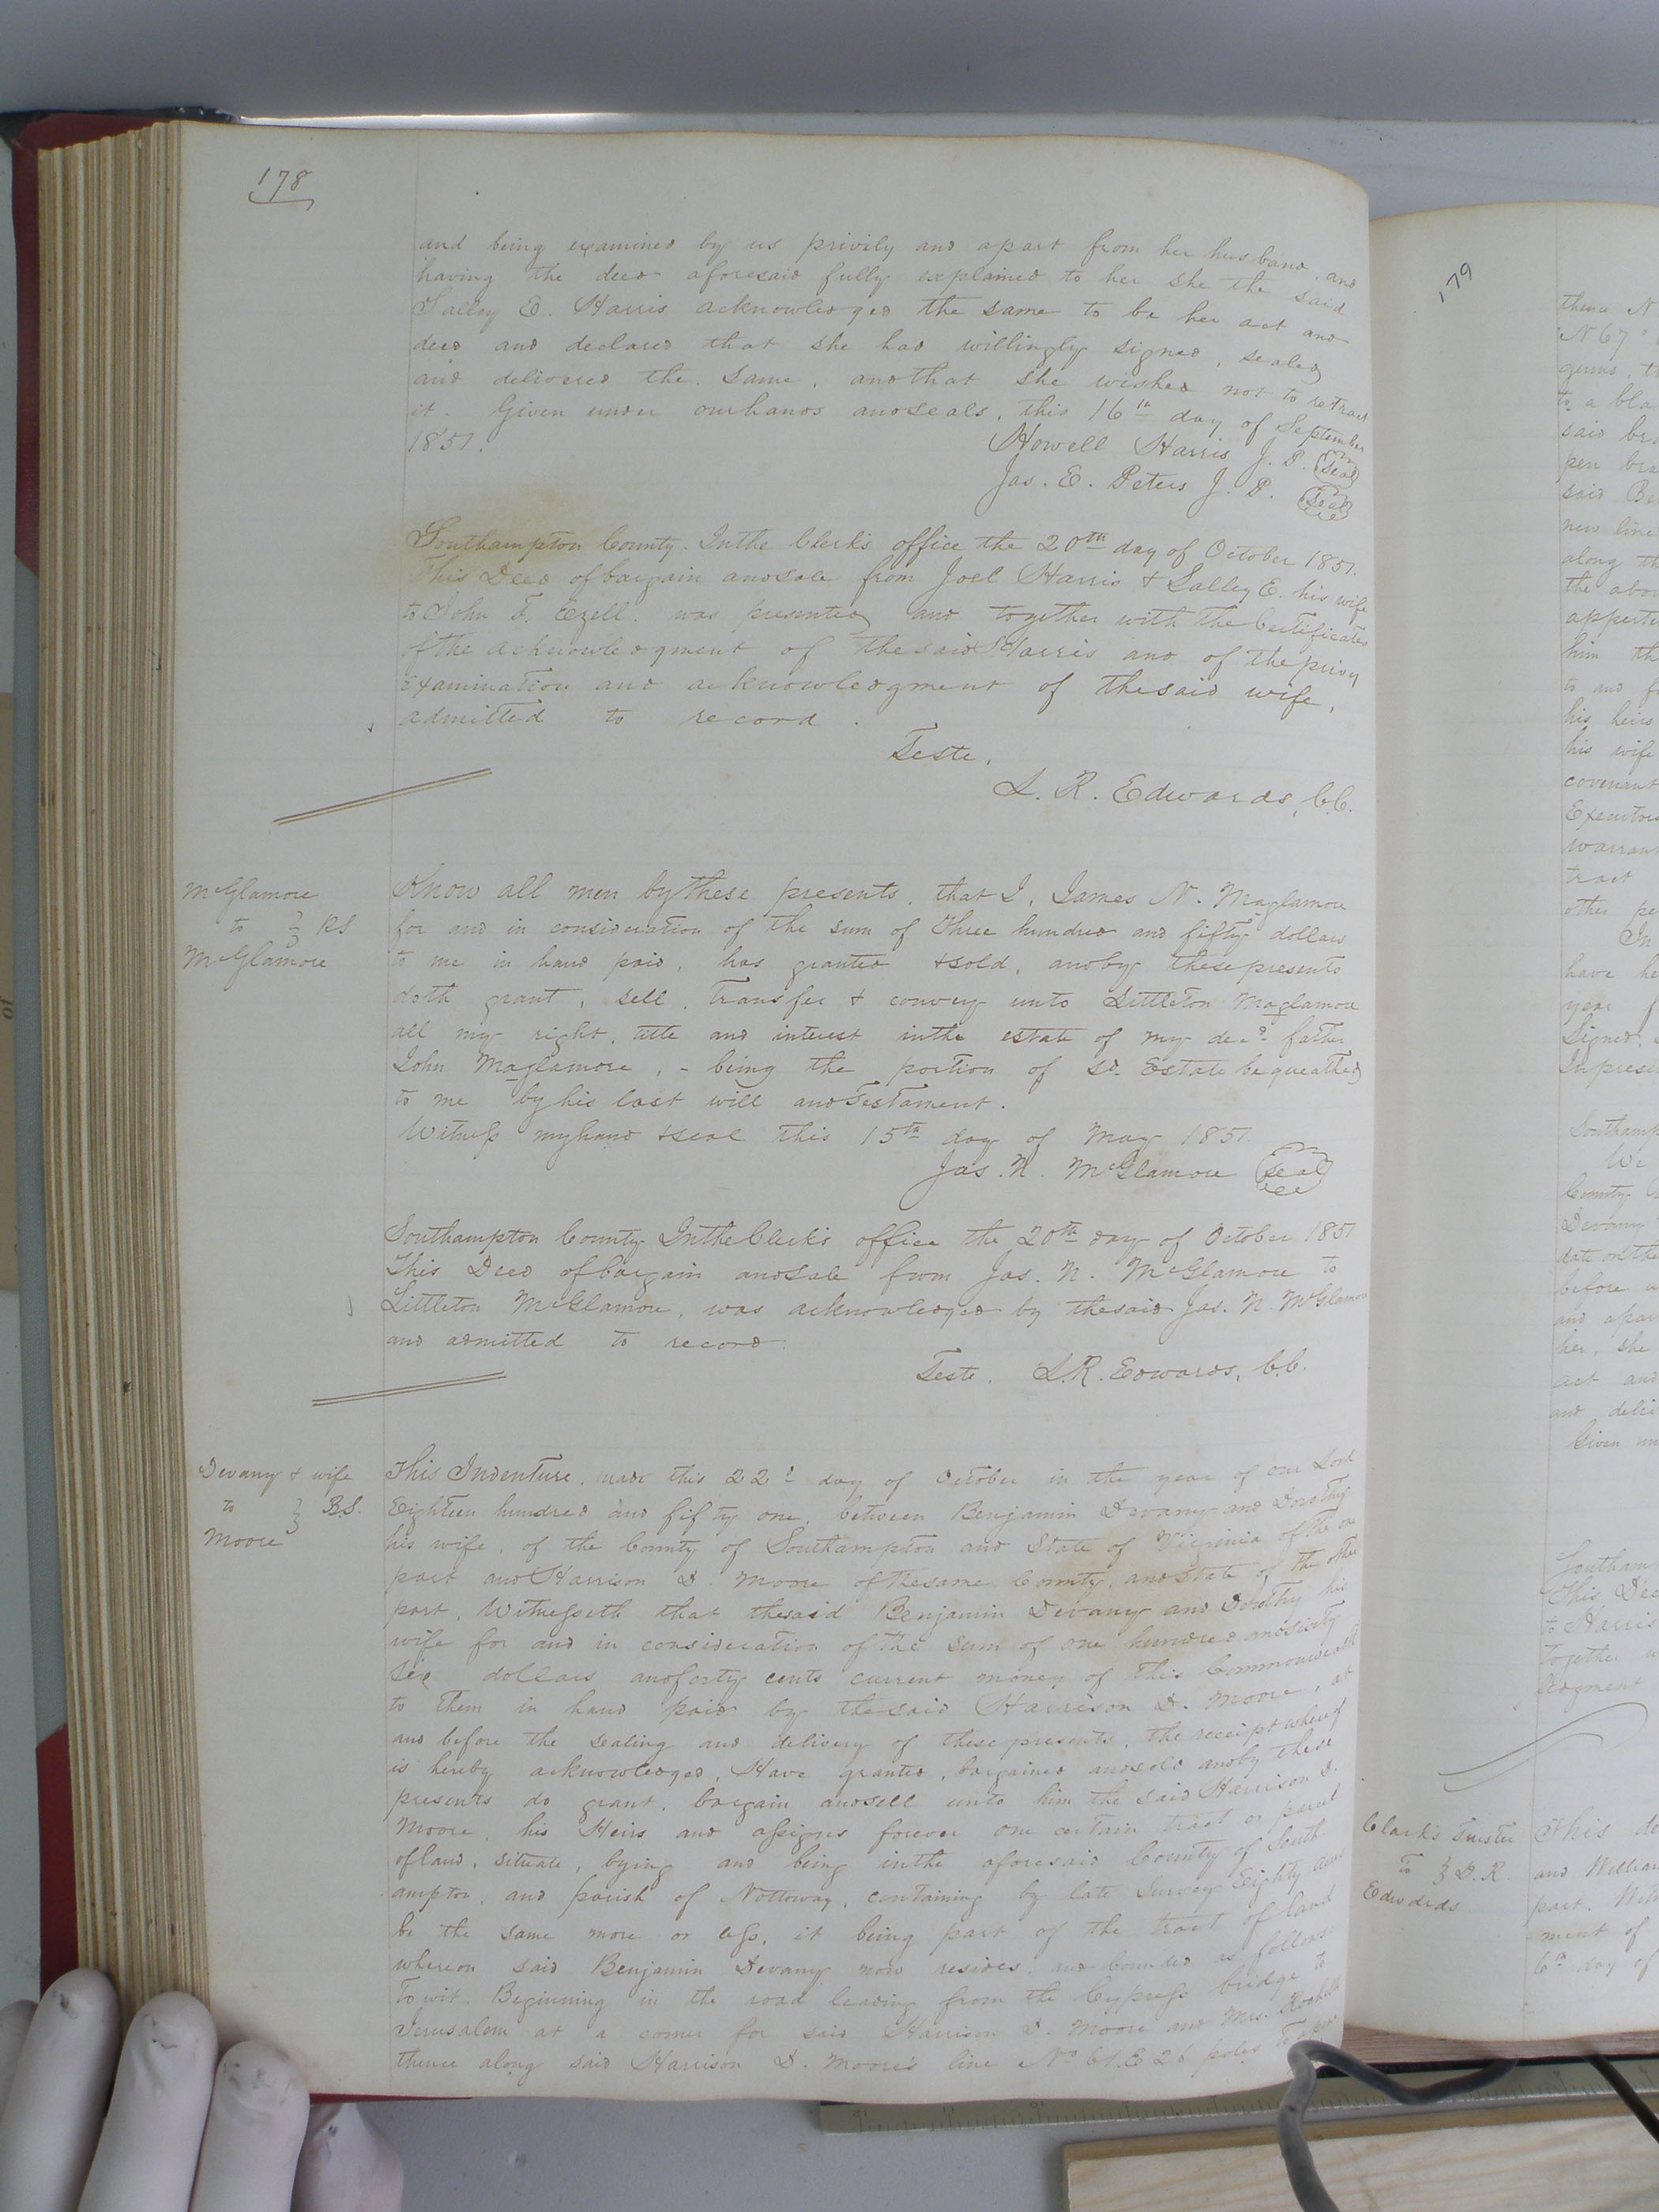 178
and being examined by us privily and apart from her husband, and
having the deed aforesaid fully explained to her she the said
Salley E. Harris acknowledged the same to be her act and
deed and declared that she had willingly signed, sealed
and delivered the same, and that she wished not to retract
it. Given under our hands and seals, this 16th day of September
1851.
Howell Harris J. P. (Seal)
Jas. E. Peters J. P. (Seal)
Southampton County. In the Clerk's office the 20th day of October 1851.
This Deed of bargain and sale from Joel Harris & Salley E. his wife
to John F. Ezell, was presented and together with the Certificates
of the acknowledgment of the said Harris and of the privy
examination and acknowledgment of the said wife,
admitted to record.
Teste,
L. R. Edwards, C.C.
McGlamore
to } BS
McGlamore
Know all men by these presents, that I, James N. Maglamore
for and in consideration of the sum of Three hundred and fifty dollars
to me in hand paid, has granted & sold, and by these presents
doth grant, sell, transfer & convey unto Littleton Maglamore
all my right, title and interest in the estate of my decd. father
John Maglamore, - being the portion of sd. Estate bequeathed
to me by his last will and Testament.
Witness my hand & seal this 15th day of May 1851.
Jas. N. McGlamore (Seal)
Southampton County In the Clerk's office the 20th day of October 1851
This Deed of bargain and Sale from Jas. N. McGlamore to
Littleton McGlamore, was acknowledged by the said Jas. N. McGlamore
and admitted to record.
Teste, L. R. Edwards, C.C.
Devany & wife
to } B.S.
Moore
This Indenture, made this 22d day of October in the year of our Lord
Eighteen hundred and fifty one, between Benjamin Devany and Dorothy
his wife, of the County of Southampton and State of Virginia of the one
part and Harrison D. Moore of the same County, and State of the other
part, Witnesseth that the said Benjamin Devany and Dorothy his
wife for and in consideration of the sum of one hundred and sixty
six dollars and forty cents current money of this Commonwealth
to them in hand paid by the said Harrison D. Moore, at
and before the sealing and delivery of these presents, the receipt whereof
is hereby acknowledged, Have granted, bargained and sold and by these
presents do grant, bargain and sell unto him the said Harrison D.
Moore, his Heirs and assigns forever one certain tract or parcel
of land, situate, lying and being in the aforesaid County of South
ampton, and parish of Nottoway, containing by late Survey Eighty acres
be the same more or less, it being part of the tract of land
whereon said Benjamin Devany now resides, and bounded as follows
To wit. Beginning in the road leading from the Cypress bridge to
Jerusalem at a corner for said Harrison D. Moore and Mrs.
thence along said Harrison D. Moore's line No 61. E 26 poles
179
thence N
N 67°
gums, t
to a bla
said bra
pen bra
said Be
new line
along th
the abov
apperte
him th
to and f
his heirs
his wife
covenant
Executors
warran
tract
other pe
In
have he
year f
Signed,
In presen
Southamp
We
County
Devany
date on the
before u
and apar
her, she
act and
and deli
Given un
Southamp
This Dee
to Harris
together w
edgment
Clark's Trustee
to } D.R.
Edwards
This de
and William
part. Witn
ment of
6th day of